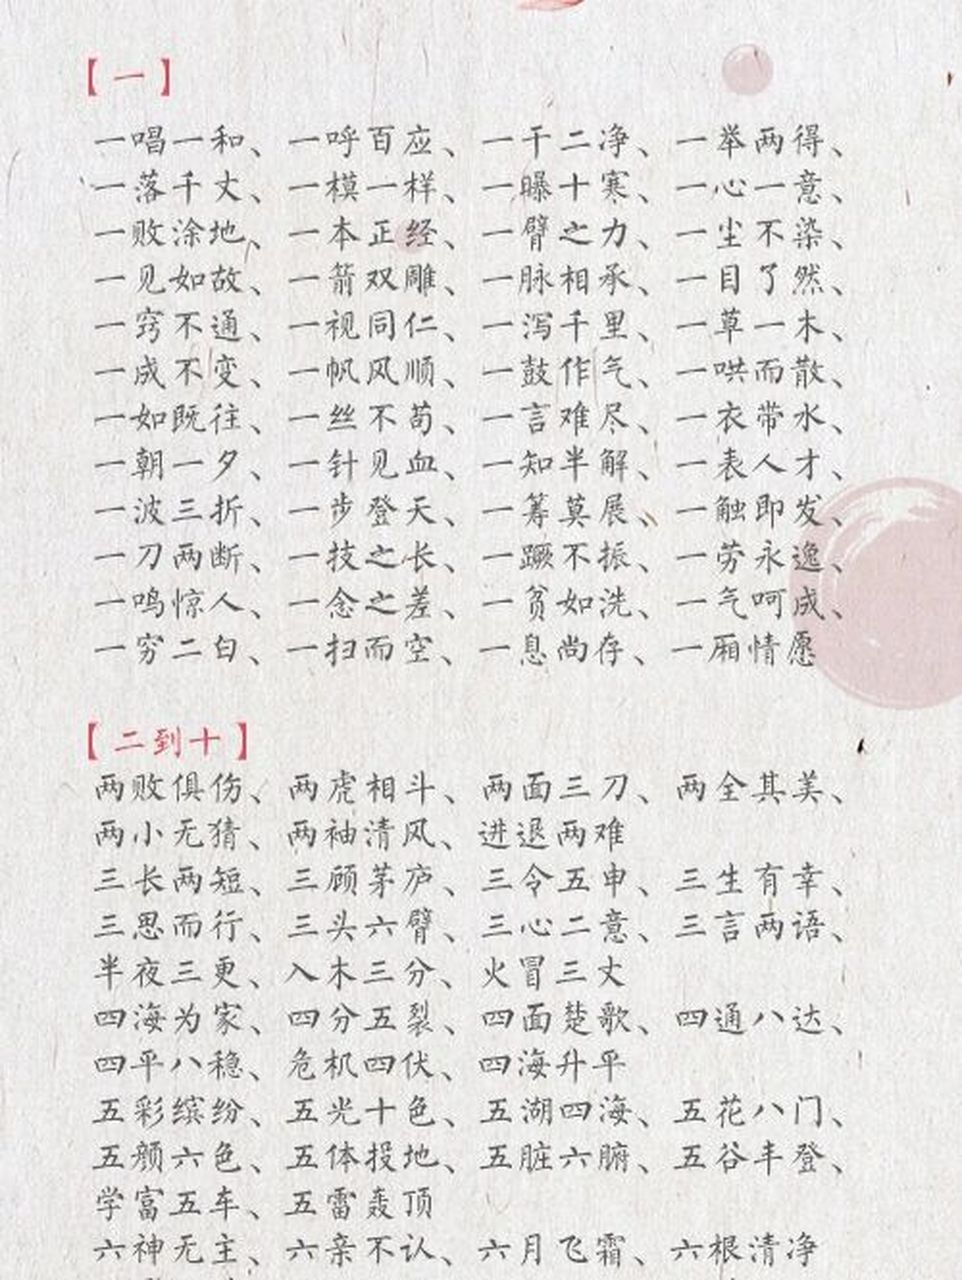 【一】
一唱一和、一呼百应、一干二净、一举两得、
一落千丈、一模一样、一曝十寒、一心一意、
一败涂地、一本正经、一臂之力、一尘不染、
一见如故、一箭双雕、一脉相承、一目了然、
一窍不通、一视同仁、一泻千里、一草一木、
一成不变、一帆风顺、一鼓作气、一哄而散、
一如既往、一丝不苟、一言难尽、一衣带水、
一朝一夕、一针见血、一知半解、一表人才、
一波三折、一步登天、一筹莫展、一触即发、
一刀两断、一技之长、一蹶不振、一劳永逸、
一鸣惊人、一念之差、一贫如洗、一气呵成、
一穷二白、一扫而空、一息尚存、一厢情愿
【二到十】
两败俱伤、两虎相斗、两面三刀、两全其美、
两小无猜、两袖清风、进退两难
三长两短、三顾茅庐、三令五申、三生有幸、
三思而行、三头六臂、三心二意、三言两语、
半夜三更、入木三分、火冒三丈
四海为家、四分五裂、四面楚歌、四通八达、
四平八稳、危机四伏、四海升平
五彩缤纷、五光十色、五湖四海、五花八门、
五颜六色、五体投地、五脏六腑、五谷丰登、
学富五车、五雷轰顶
六神无主、六亲不认、六月飞霜、六根清净